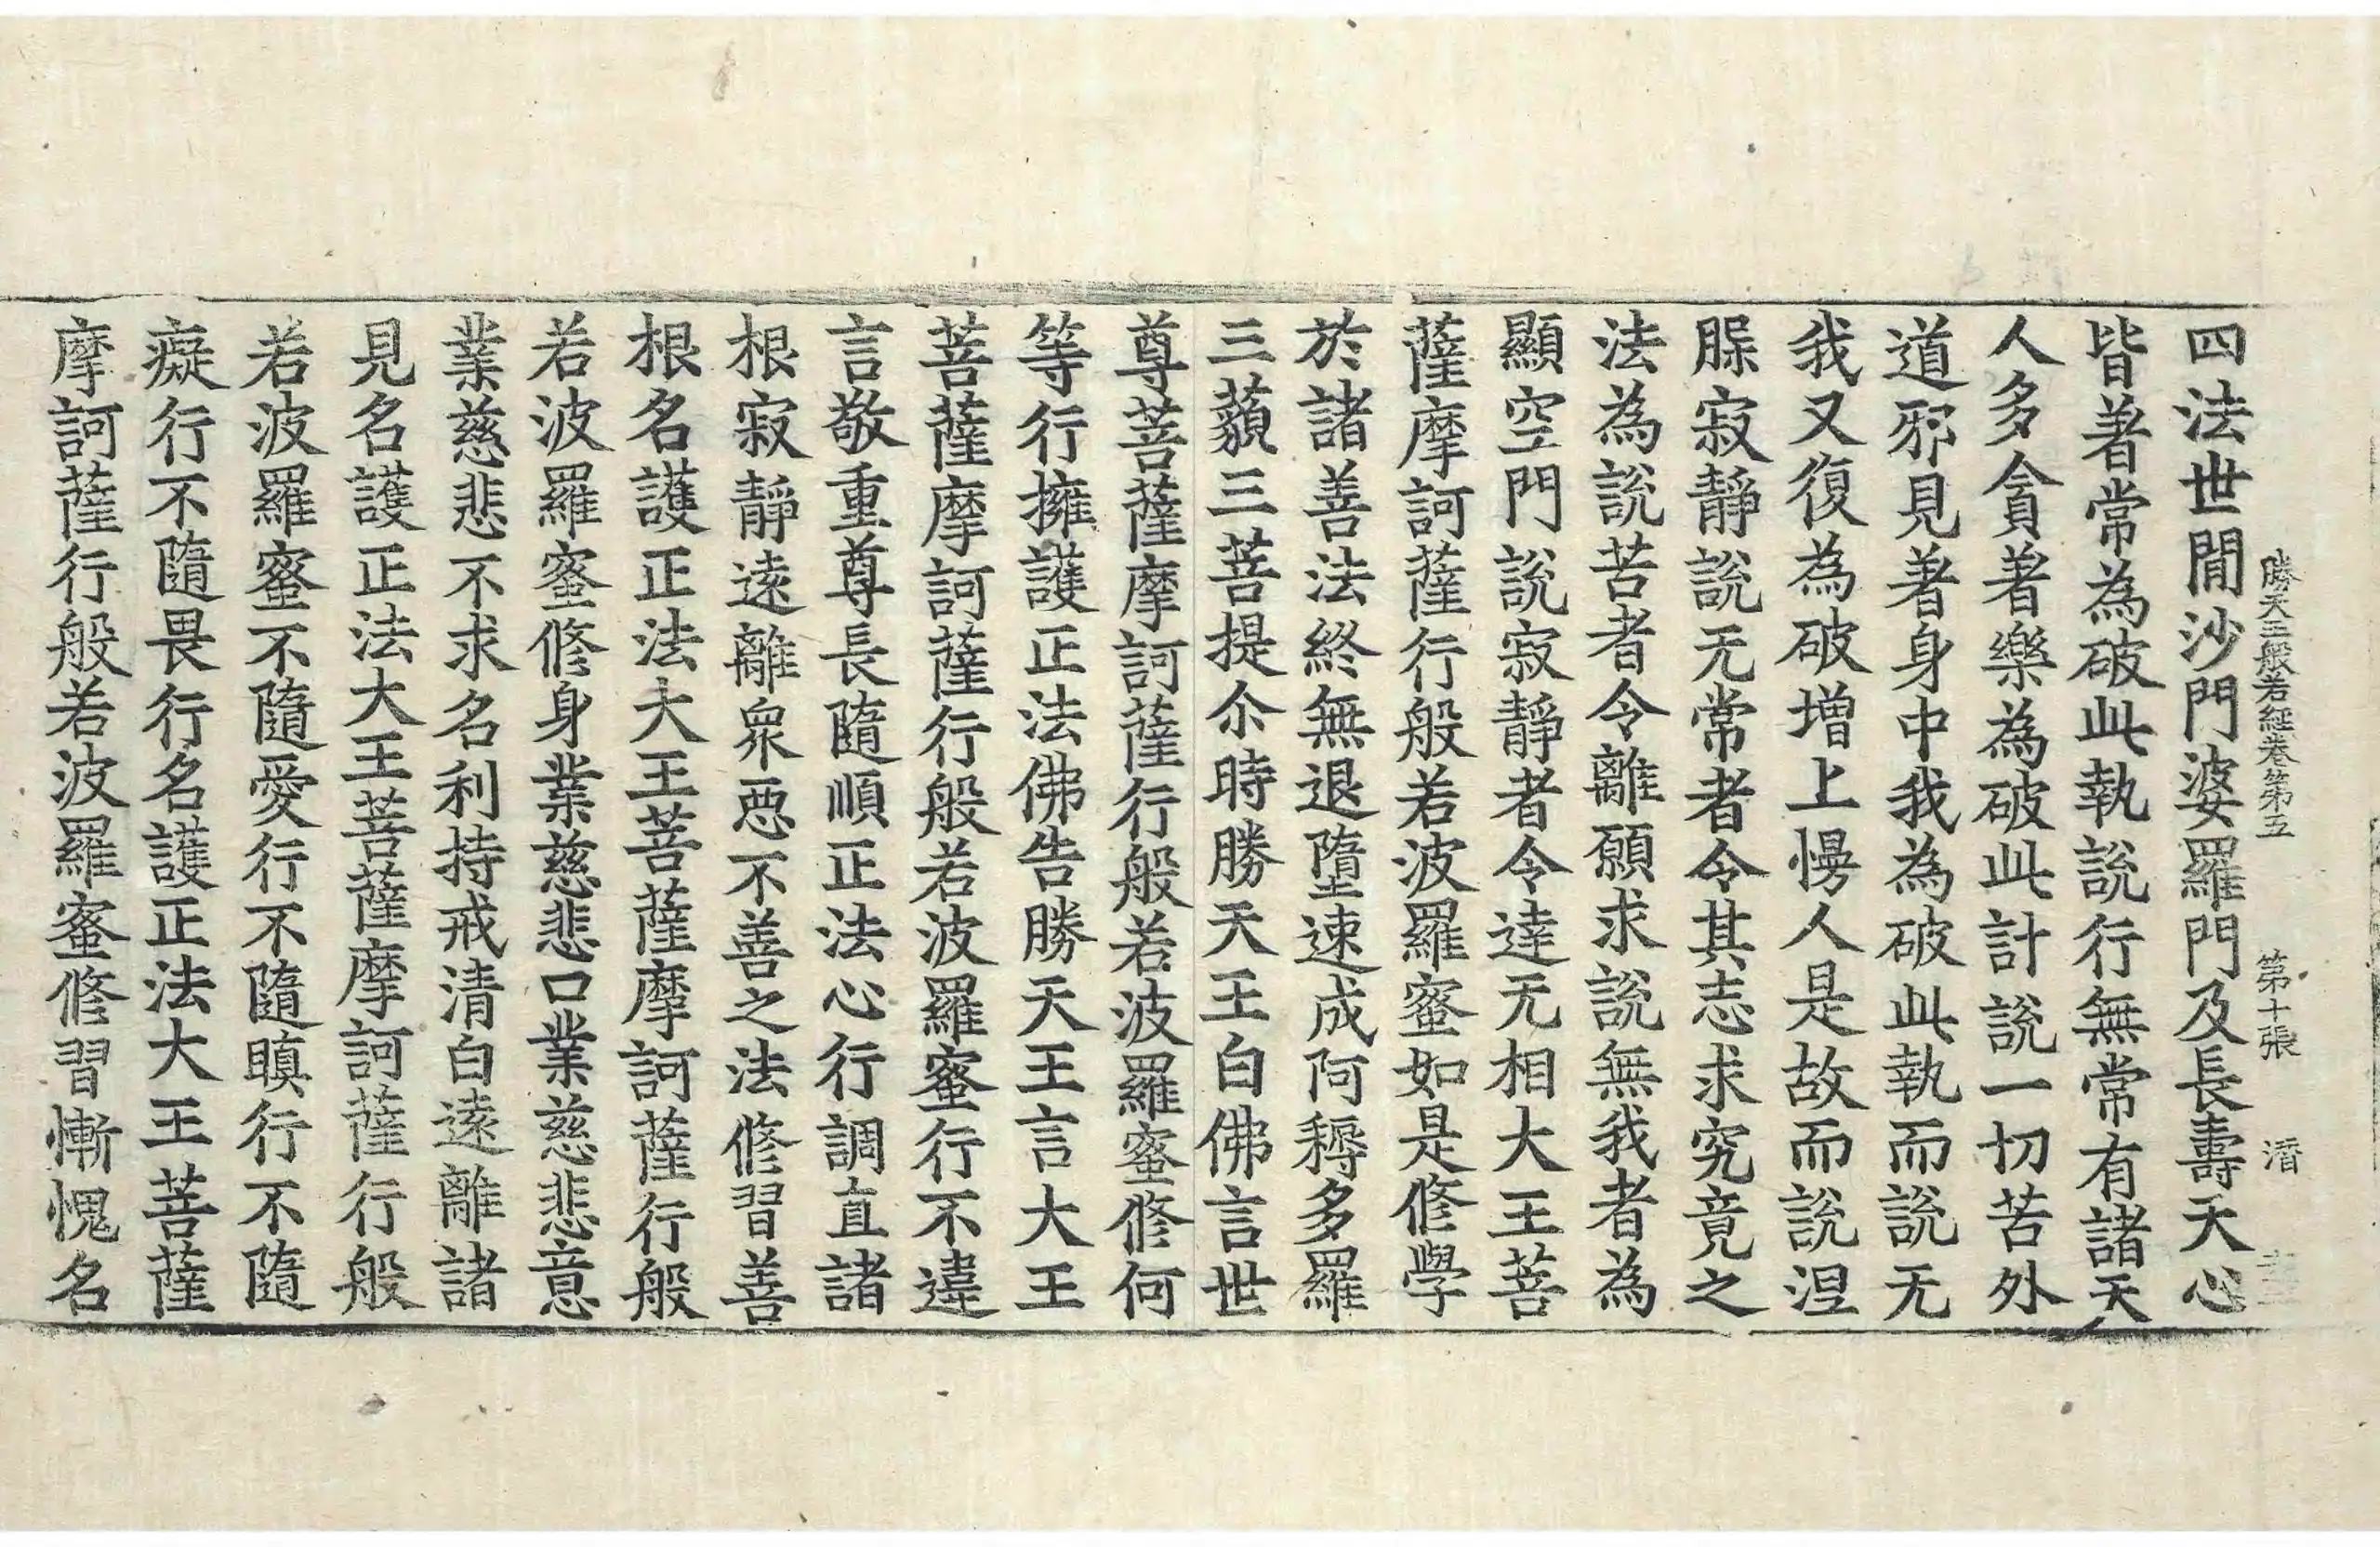 勝天王般若經卷第五　第十張　潛
四法世間沙門婆羅門及長壽天心
皆著常為破此執說行無常有諸天
人多貪著樂為破此計說一切苦外
道邪見著身中我為破此執而說无
我又復為破增上慢人是故而說涅
槃寂靜說无常者令其志求究竟之
法為說苦者令離願求說無我者為
顯空門說寂靜者令達无相大王菩
薩摩訶薩行般若波羅蜜如是修學
於諸善法終無退墮速成阿耨多羅
三藐三菩提尒時勝天王白佛言世
尊菩薩摩訶薩行般若波羅蜜修何
等行擁護正法佛告勝天王言大王
菩薩摩訶薩行般若波羅蜜行不違
言敬重尊長隨順正法心行調直諸
根寂靜遠離眾惡不善之法修習善
根名護正法大王菩薩摩訶薩行般
若波羅蜜修身業慈悲口業慈悲意
業慈悲不求名利持戒清白遠離諸
見名護正法大王菩薩摩訶薩行般
若波羅蜜不隨愛行不隨瞋行不隨
癡行不隨畏行名護正法大王菩薩
摩訶薩行般若波羅蜜修習慚愧名